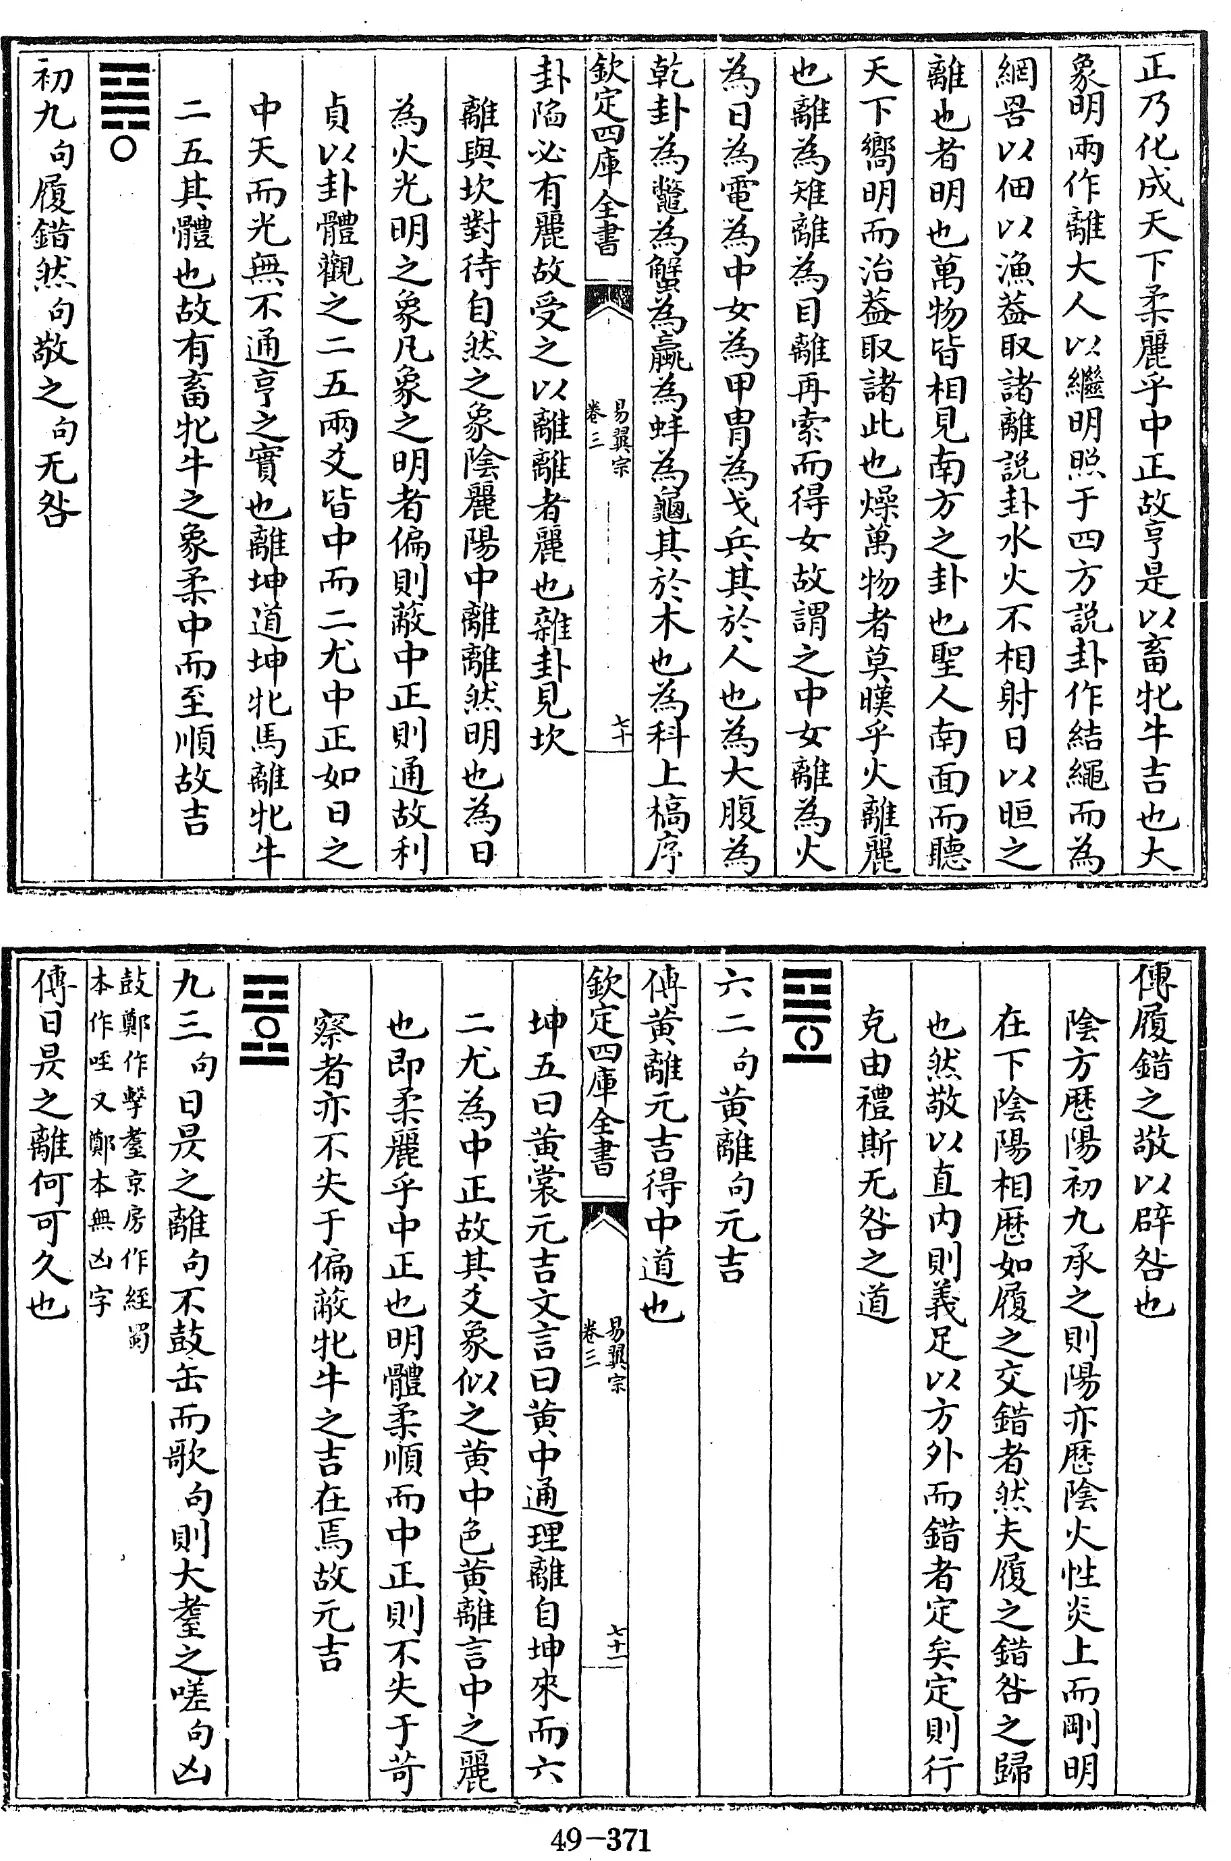 正乃化成天下柔麗乎中正故亨是以畜牝牛吉也大
象明兩作離大人以繼明照于四方説卦作結繩而為
網罟以佃以漁葢取諸離説卦水火不相射日以晅之
離也者明也萬物皆相見南方之卦也聖人南面而聽
天下嚮明而治葢取諸此也燥萬物者莫熯乎火離麗
也離為雉離為目離再索而得女故謂之中女離為火
為日為電為中女為甲胄為戈兵其於人也為大腹為
乾卦為鼈為蟹為蠃為蚌為龜其於木也為科上槁序
欽定四庫全書
易翼宗
卷三
七十
卦陷必有麗故受之以離離者麗也雜卦見坎
離與坎對待自然之象陰麗陽中離離然明也為日
為火光明之象凡象之明者偏則蔽中正則通故利
貞以卦體觀之二五兩爻皆中而二尤中正如日之
中天而光無不通亨之實也離坤道坤牝馬離牝牛
二五其體也故有畜牝牛之象柔中而至順故吉
初九句履錯然句敬之句无咎
傳履錯之敬以辟咎也
陰方歴陽初九承之則陽亦歴陰火性炎上而剛明
在下陰陽相歴如履之交錯者然夫履之錯咎之歸
也然敬以直内則義足以方外而錯者定矣定則行
克由禮斯无咎之道
六二句黄離句元吉
傳黄離元吉得中道也
欽定四庫全書
易翼宗
卷三
七十一
坤五曰黄裳元吉文言曰黄中通理離自坤來而六
二尤為中正故其爻象似之黄中色黄離言中之麗
也即柔麗乎中正也明體柔順而中正則不失于苛
察者亦不失于偏蔽牝牛之吉在焉故元吉
九三句日昃之離句不鼓缶而歌句則大耋之嗟句凶
鼓鄭作擊耋京房作絰蜀
本作咥又鄭本無凶字
傳日昃之離何可久也
49-371